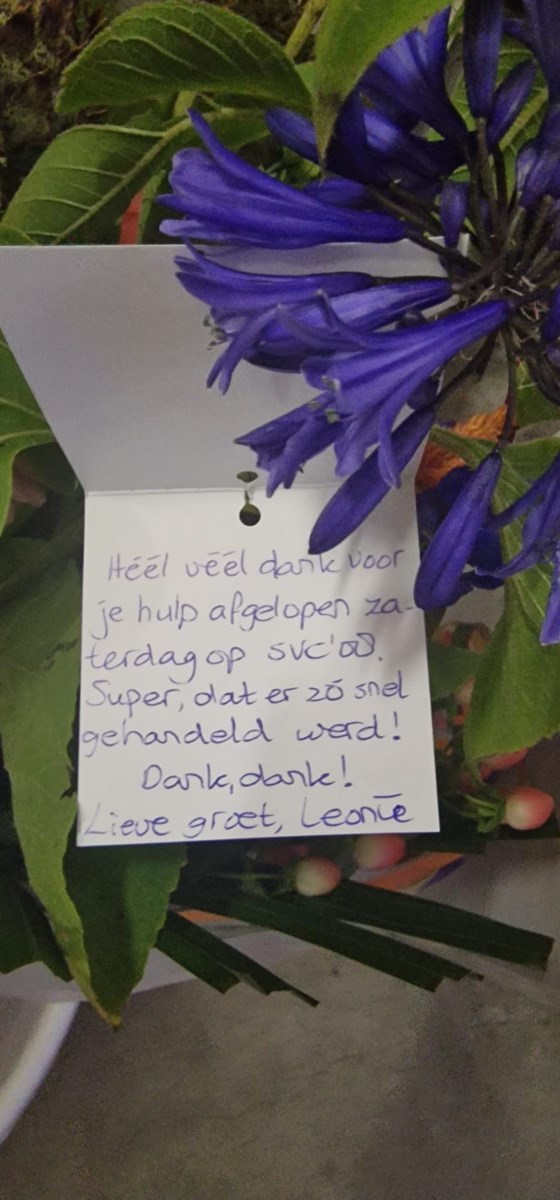 Héél véél dank voor
je hulp afgelopen za-
terdag op SVC'08.
Super, dat er zó snel
gehandeld werd!
Dank, dank!
Lieve groet, Leonie